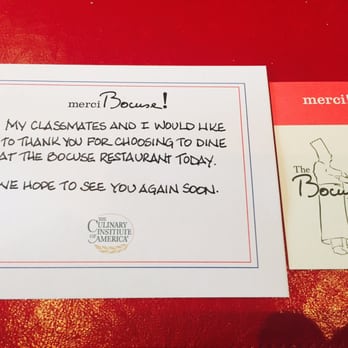 merci Bocuse!
MY CLASSMATES AND I WOULD LIKE
TO THANK YOU FOR CHOOSING TO DINE
AT THE BOCUSE RESTAURANT TODAY.
WE HOPE TO SEE YOU AGAIN SOON.
THE
CULINARY
INSTITUTE
OF
AMERICA
merci
The
Bocus